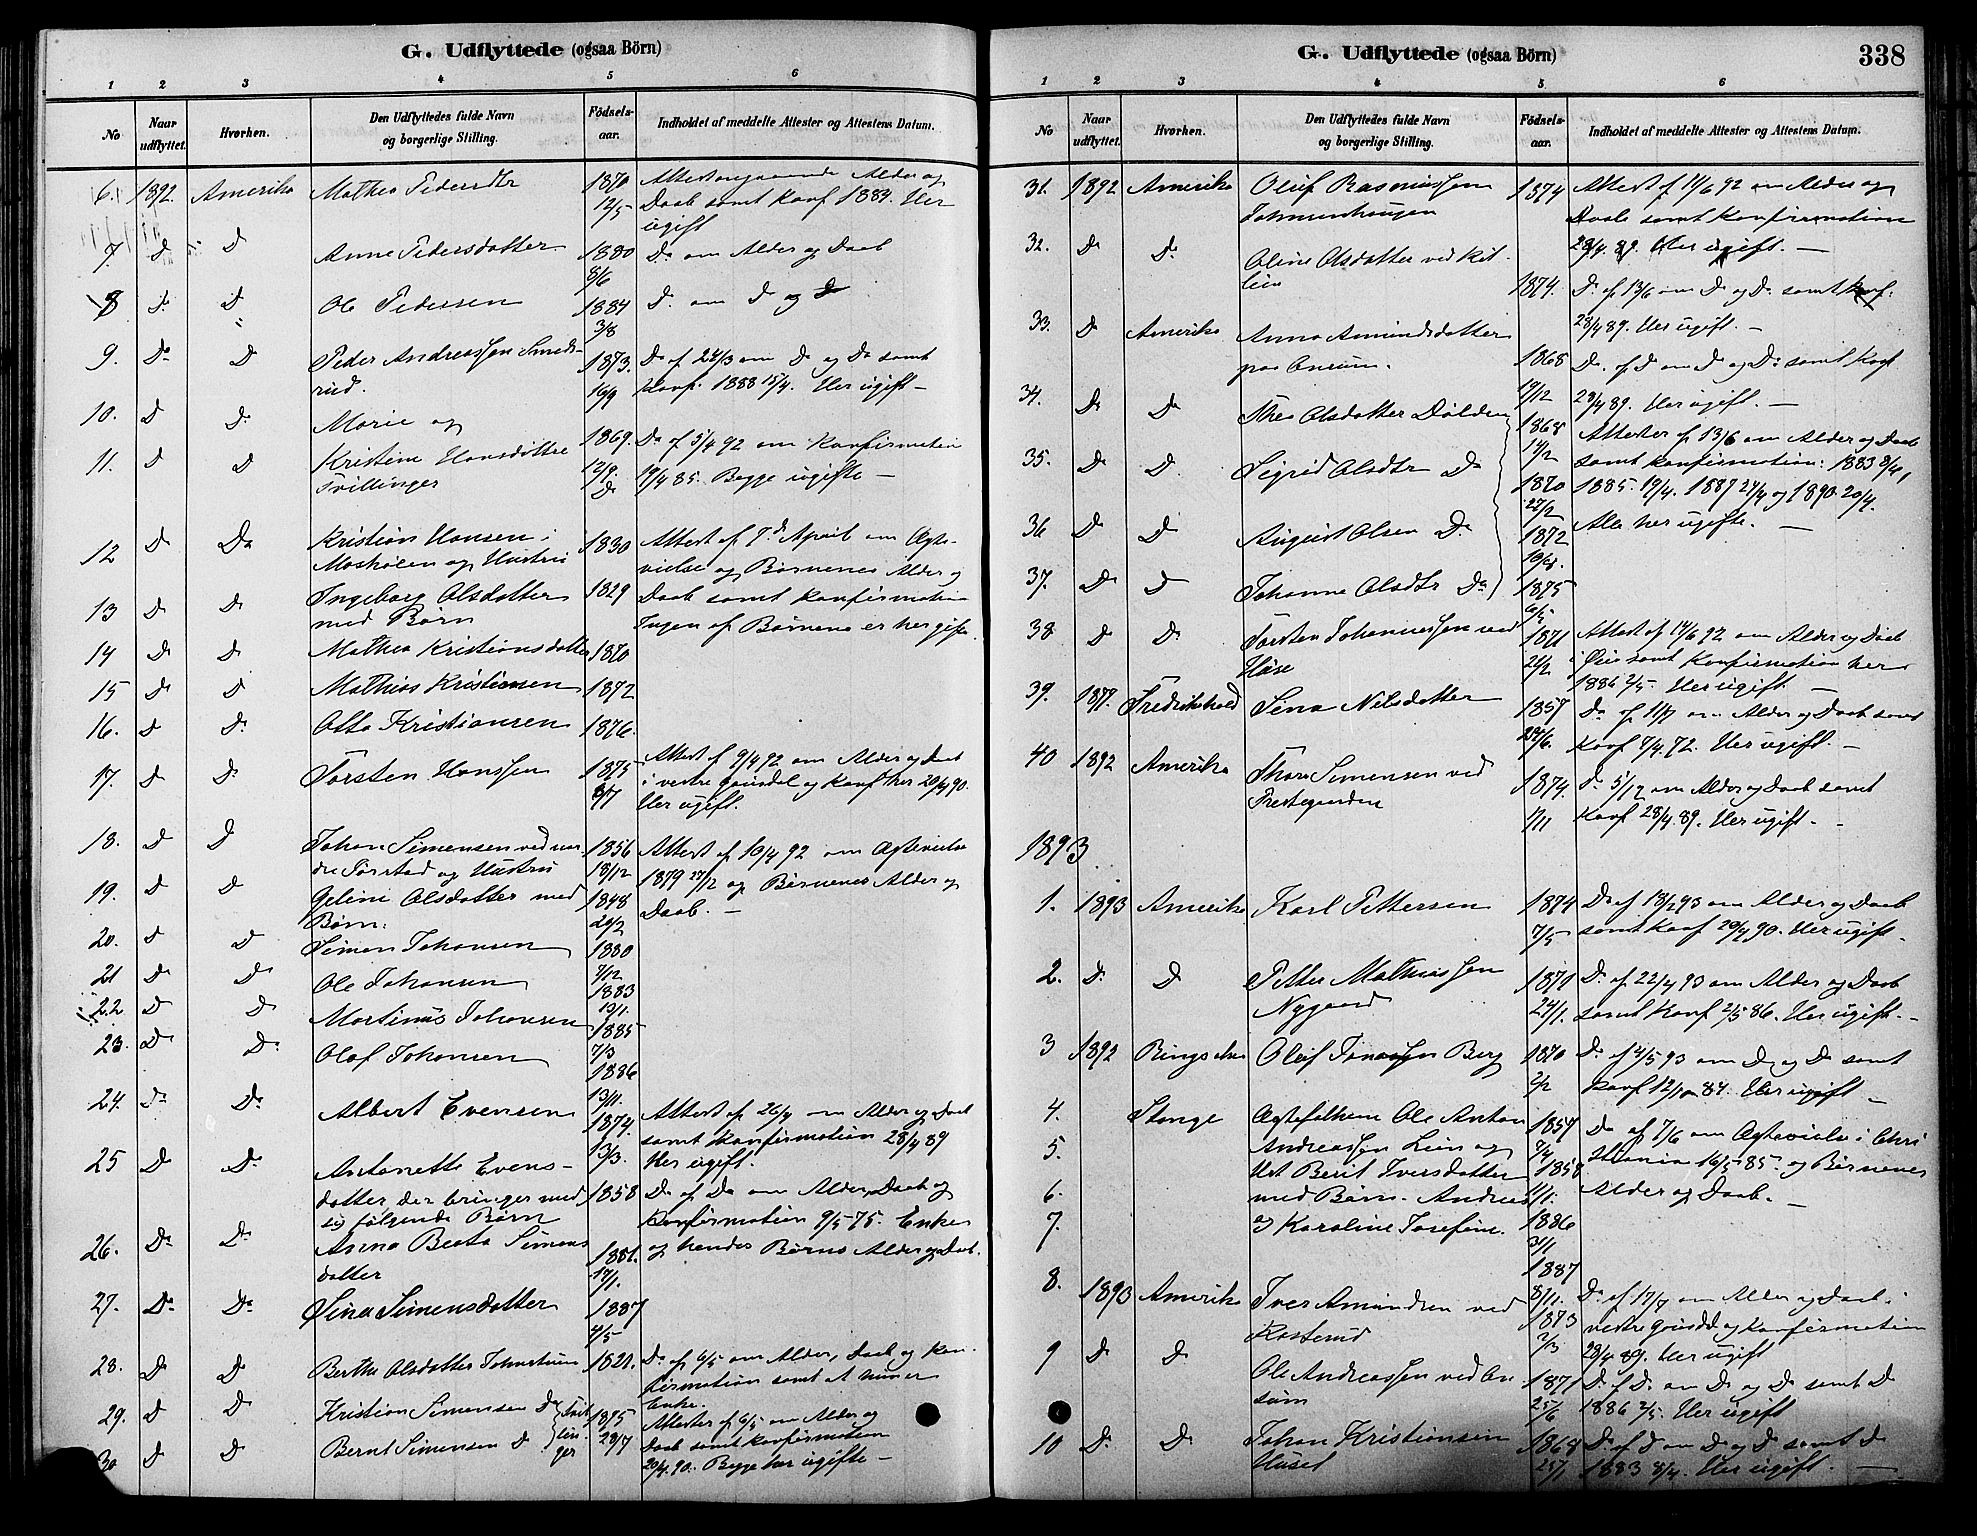 G. Udflyttede (ogsaa Börn)
1 2 3 4 5 6
No
Naar udflyttet.
Hvorhen.
Den Udflyttedes fulde Navn og borgerlige Stilling.
Födsels-aar.
Indholdet af meddelte Attester og Attestens Datum.
6. 1892. Amerika Mathea Pedersdtr 1870 12/5 Attest angaaende Alder og
Daab samt Konf 1884. Her
ugift
7. D D Anne Pedersdatter 1880 8/6 Do om Alder og Daab
8 D. D Ole Pedersen 1884 3/8 D. om D og D
9. Do D Peder Andreassen Smeds-
rud. 1873. 16/9 Do af 24/3 om Do og Do samt
Konf. 1888 15/4. Her ugift –
10. D D. Marie og
11. D D Kristine Hansdöttre
Tvillinger 1869. 12/9. D Do af 5/4 92 om Konfirmation
19/4 85. Begge ugifte –
12 D Do Kristian Hansen i
Moshölen og Hustru 1830 Attest af 7d April om Ægte-
vielse og Børnenes Alder og
13 D D Ingeborg Olsdatter
med Børn 1829 Daab samt Konfirmation
Ingen af Børnene er her gifte.
14 D D Mathea Kristiansdatter 1870
15 D D Mathias Kristiansen 1872
16. D D Otto Kristiansen 1876.
17. D D Torsten Hanssen 1875 6/7 Attest af 9/4 92 om Alder og Daab
i vestre Gausdal og Konf her 20/4 90.
Her ugift.
18. D D Johan Simensen ved nor-
dre Tørstad og Hustru 1856 18/12 Attest af 10/4 92 om Ægtevielse
1879 27/12 og Børnenes Alder og
Daab. –
19. D D Geline Olsdatter med
Børn: 1848 29/2
20. D D Simen Johansen 1880 7/12
21 D D Ole Johansen 1883 19/1.
22. D D Martinus Johansen 1885 7/3
23. D D. Olaf Johansen 1886 13/11.
24. D D. Albert Evensen 1874. 13/3. Attest af 26/4 om Alder og Daab
samt Konfirmation 28/4 89
Her ugift.
25 D D. Antonette Evens-
datter, der bringer med
sig følgende Børn 1858 Do af Do om Alder, Daab og
Konfirmation 9/5 75. Enke
og hendes Børns Alder og Daab.
26. D. D. Anna Beata Simens
datter 1881. 17/1.
27. D. Do Sina Simensdatter 1887 4/5
28. D D Berthe Olsdatter 1821. Do af 6/5 om Alder, Daab og Kon-
firmation samt at hun er
Enke.
29. D D Kristian Simensen Do Tvil
lin-
ger 1875 28/7 Attester af 6/5 om Alder og
Daab samt Konfirmation
20/4 90. Begge her ugifte –
30 D D Bernt Simensen D
G. Udflyttede (ogsaa Börn) 338
1 2 3 4 5 6
No
Naar udflyttet.
Hvorhen.
Den Udflyttedes fulde Navn og borgerlige Stilling.
Födsels-aar.
Indholdet af meddelte Attester og Attestens Datum.
31. 1892 Amerika Oluf Rasmussen
1874 Attest af 11/6 92 om Alder og
Daab samt Konfirmation
28/4 89. Her ugift. –
32. D. D. Oline Olsdatter ved Kit-
lien 1874. D. af 13/6 om D og D. samt Konf.
28/4 89. Her ugift. –
33. D Amerika Anna Amundsdatter
paa 1868 19/12 D. af D om D og D. samt Konf
28/4 89. Her ugift. –
34. D. D Thea Olsdatter Dölden 1868 14/2 Attester af 13/6 om Alder og Daab
35. D D. Sigrid Olsdtr Do 1870 22/2 samt Konfirmation: 1883 8/4,
1885. 19/4. 1887 24/4 og 1890 20/4.
36 D D August Olsen D. 1872 Alle her ugifte. –
37. D D Johanne Olsdtr Do 1875
38 D D Torsten Johannessen ved
Huse 1871 21/2 Attest af 14/6 92 om Alder og Daab
i samt Konfirmation her
1886 2/5. Her ugift. –
39. 1877. Fredrikshald Sina Nilsdatter 1857 29/6. Do af 11/7 om Alder og Daab samt
Konf 7/4 72. Her ugift. –
40 1892 Amerika Thora Simensen ved
Prestegaarden 1874. 1/11 D 5/12 om Alder og Daab samt
Konf 28/4 89. Her ugift. –
1893
1. 1893 Amerika Karl Pettersen 1874 7/5 Do af 18/2 93 om Alder og Daab
samt Konf 20/4 90. Her ugift.
2. D. D Petter Mathiassen
Nygaard 1870 24/1. D. af 22/4 93 om Alder og Daab
samt Konf 2/5 86. Her ugift. –
3 1892 Ringsaker Oluf Jonassen Berg 1870 2/2 D. af 4/5 93 om D og D samt
Konf 12/10 84. Her ugift –
4. Stange Ægtefolkene Ole Anton
Andreassen Lien og 1857 7/4 Do af 7/6 om Ægtevielse i Chri
stiania 16/5 85 og Børnenes
Alder og Daab. –
5. Ust Berit Iversdatter 1858 11/1.
6. med Børn. Andreas
7. og Karoline Josefine. 1886 31/1
1887 8/11.
8. 1893 Amerika Iver Amundsen ved
Rosterud 1873 2/3 D. af 17/7 om Alder og Daab i
vestre Gausdal og Konfirmation
28/4 89. Her ugift
9 D D Ole Andreassen ved
1871 25/6 D. af D. om D og D samt D
1886 2/5. Her ugift
10 D. D Johan Kristiansen
Huset 1868 25/1 D. af D om D og D samt D
1883 8/4. Her ugift. –